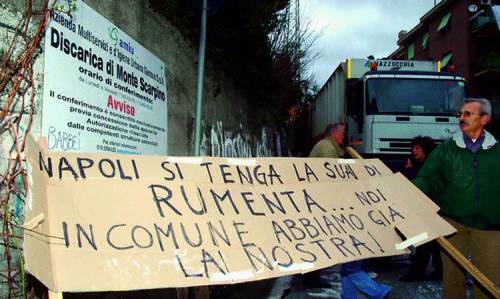 amiu
Azienda Multiservizi e d'Igiene Urbana Genova S.p.A.
Discarica di Monte Scarpino
orario di conferimento:
Avviso
Il conferimento è consentito
previa concessione della apposita
Autorizzazione rilasciata
dalle competenti strutture aziendali
BABBEI
MAZZOCCHIA
NAPOLI SI TENGA LA SUA DI
RUMENTA... NOI
IN COMUNE ABBIAMO GIA
LA NOSTRA!